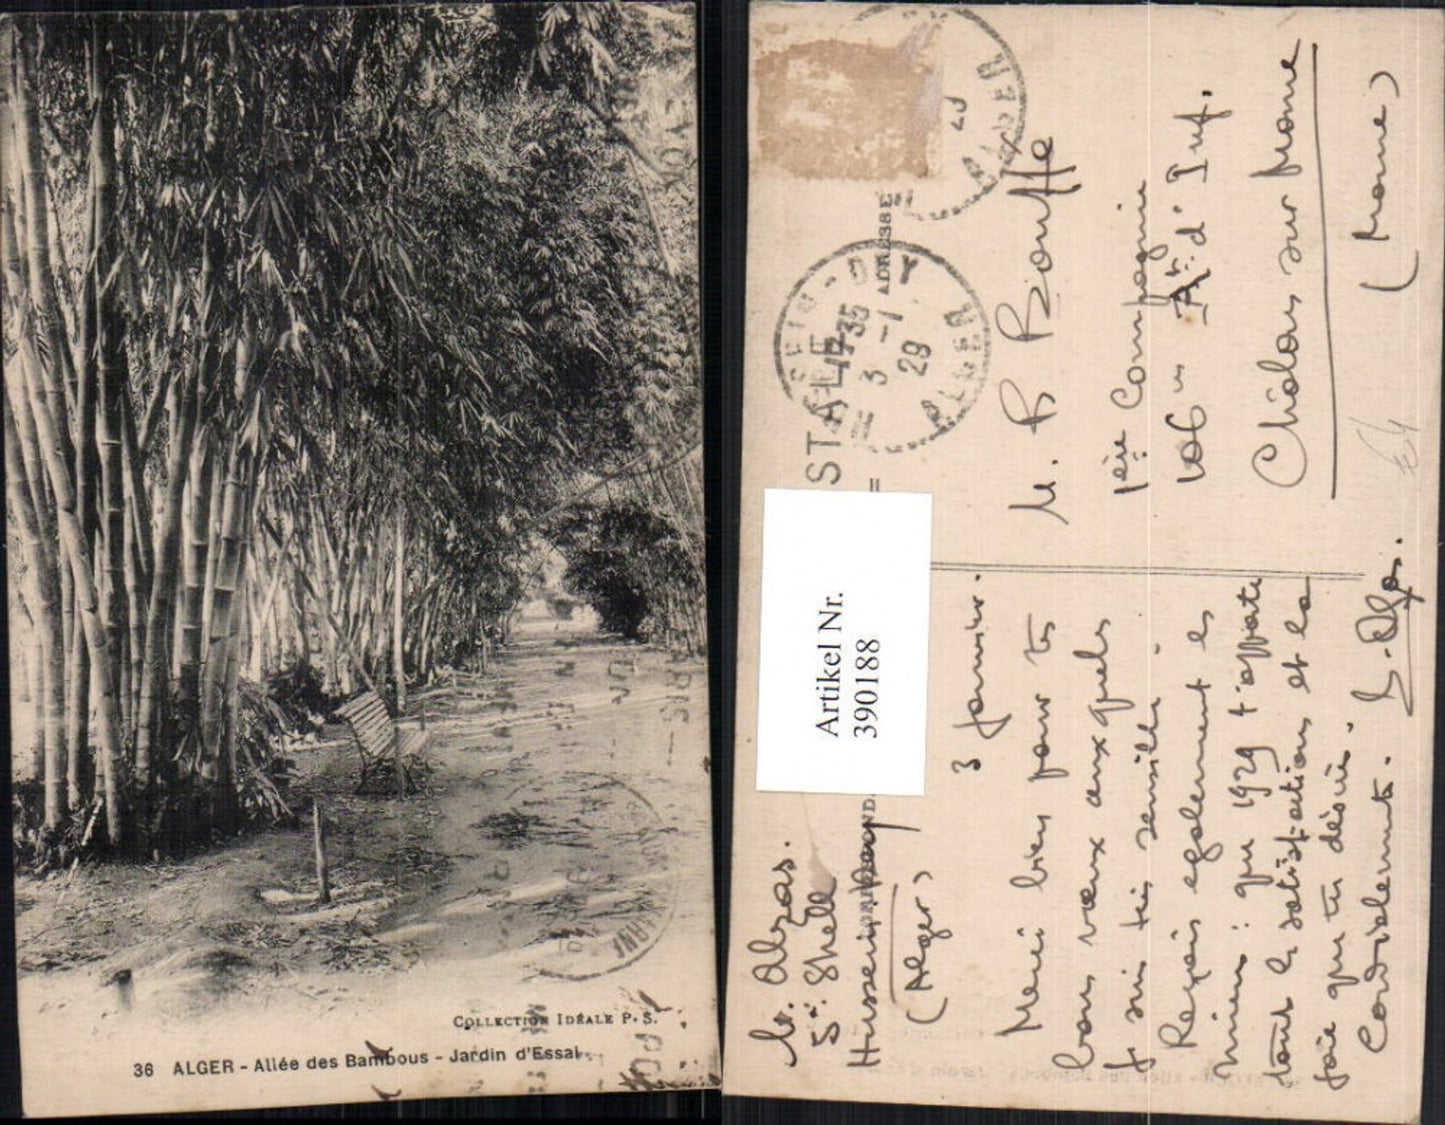 COLLECTION IDÉALE P. S.
36 ALGER - Allée des Bambous - Jardin d'Essai
ADRESSE
17 35
3 -1
29
ALGER
Artikel Nr.
390188
M. Alzas.
Sté Shell
Hussein Dey
(Alger)
3 Janvier.
Merci bien pour tes
bons vœux auxquels
je suis très sensible.
Reçois également les
miens : que 1929 t'apporte
toute la satisfaction et la
joie que tu désires.
Cordialement.
M. R Bouffe
1ère Compagnie
106e Rt. d'Inf.
Chalons sur Marne
(Marne)